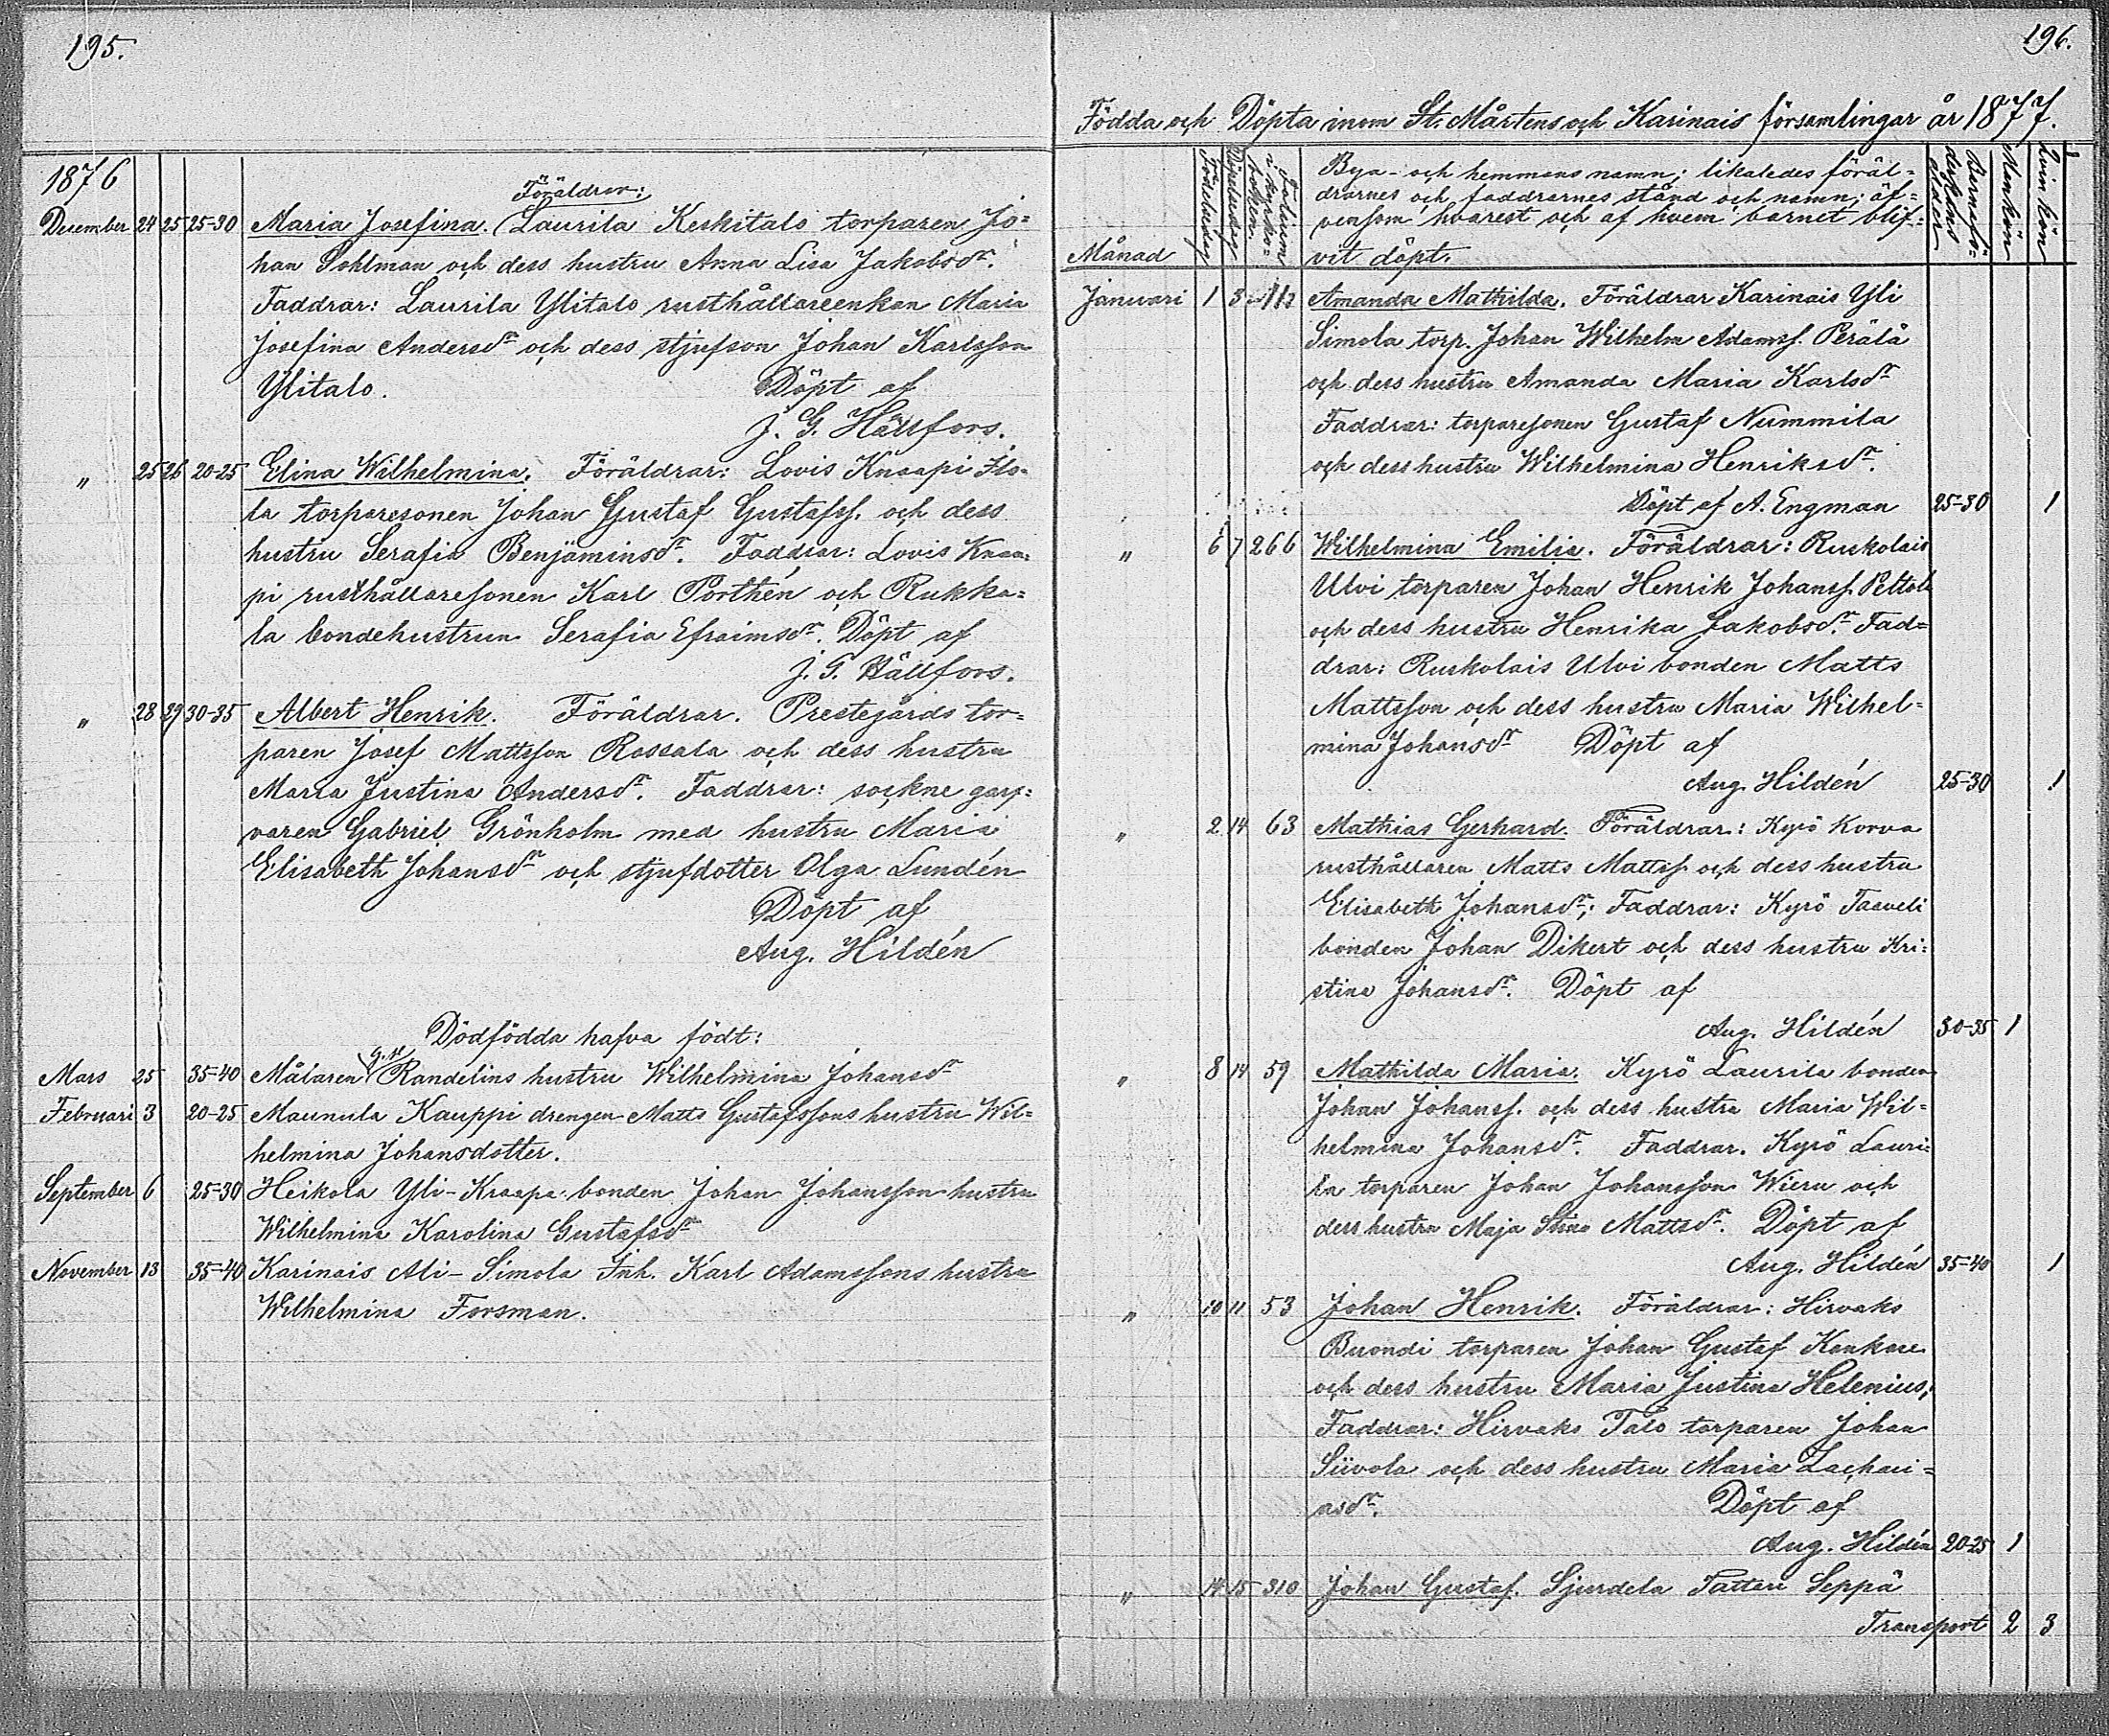 195.
1876
Föräldrar:
Desember 24 25 25-30 Maria Josefina. Laurila Keskitalo torparen Jo=
han Sohlman och dess hustru Anna Lisa Jakobsdr.
Faddrar: Laurila Ylitalo rusthållareenkan Maria
Josefina Andersdr och dess stjufson Johan Karlsson
Ylitalo. Döpt af
J. G. Hällfors.
" 25 26 20-25 Elina Wilhelmina. Föräldrar: Lovis Knaapi Ilo=
la torparesonen Johan Gustaf Gustafss. och dess
hustru Serafia Benjaminsdr. Faddrar: Lovis Knaa=
pi rusthållaresonen Karl Porthén och Rukka=
la bondehustrun Serafia Efraimsdr. Döpt af
J. G. Hällfors.
" 28 29 30-35 Albert Henrik. Föräldrar. Prestegårds tor=
paren Josef Mattsson Rassala och dess hustru
Maria Justina Andersdr. Faddrar: sockne garf=
varen Gabriel Grönholm med hustru Maria
Elisabeth Johansdr och stjufdotter Olga Lundén
Döpt af
Aug. Hildén
Dödfödda hafva födt:
Mars 25 35-40 Målaren Randelins hustru Wilhelmina Johansdr
Februari 3 20-25 Maunula Kauppi drengen Matts Gustafssons hustru Wil=
helmina Johansdotter.
September 6 25-30 Heikola Yli-Kraapa bonden Johan Johansson hustru
Wilhelmina Karolina Gustafsdr
November 13 35-40 Karinais Ali-Simola Inh. Karl Adamssons hustru
Wilhelmina Forsman.
196.
Födda och Döpta inom St. Mårtens och Karinais församlingar år 1877.
Månad
Födelsedag
Döpelsedag
Folium i kyrko=boken.
Bya- och hemmans namn; likaledes föräl=
drarnes och faddrarnes stånd och namn; äf=
vensom hvarest och af hvem barnet blif=
vit döpt.
Barnafö=derskans ålder
Mankön
Qvinkön
Januari 1 3 117 Amanda Mathilda. Föräldrar Karinais Yli
Simola torp. Johan Wilhelm Adamss. Perälä
och dess hustru Amanda Maria Karlsdr
Faddrar: torparesonen Gustaf Nummila
och dess hustru Wilhelmina Henriksdr.
Döpt af A. Engman 25-30 1
" 6 7 266 Wilhelmina Emilia. Föräldrar: Ruskolais
Ulvi torparen Johan Henrik Johanss. Peltola
och dess hustru Henrika Jakobsdr. Fad=
drar: Ruskolais Ulvi bonden Matts
Mattsson och dess hustru Maria Wilhel=
mina Johansdr Döpt af
Aug. Hildén 25-30 1
" 2 14 63 Mathias Gerhard. Föräldrar: Kyrö Korva
rusthållaren Matts Mattss. och dess hustru
Elisabeth Johansdr; Faddrar: Kyrö Taaveli
bonden Johan Dikert och dess hustru Kri=
stina Johansdr. Döpt af
Aug. Hildén 30-35 1
" 8 14 59 Mathilda Maria. Kyrö Laurila bonden
Johan Johanss. och dess hustru Maria Wil=
helmina Johansdr. Faddrar. Kyrö Lauri=
la torparen Johan Johansson Wieru och
dess hustru Maja Stina Mattsdr. Döpt af
Aug. Hildén 35-40 1
" 10 11 53 Johan Henrik. Föräldrar: Hirvaks
Buondi torparen Johan Gustaf Kankare
och dess hustru Maria Justina Helenius;
Faddrar: Hirvaks Talo torparen Johan
Siivola och dess hustru Maria Zachari=
asdr. Döpt af
Aug. Hildén 20-25 1
" 14 15 310 Johan Gustaf. Sjurdela Tatteri Seppä
Transport 2 3